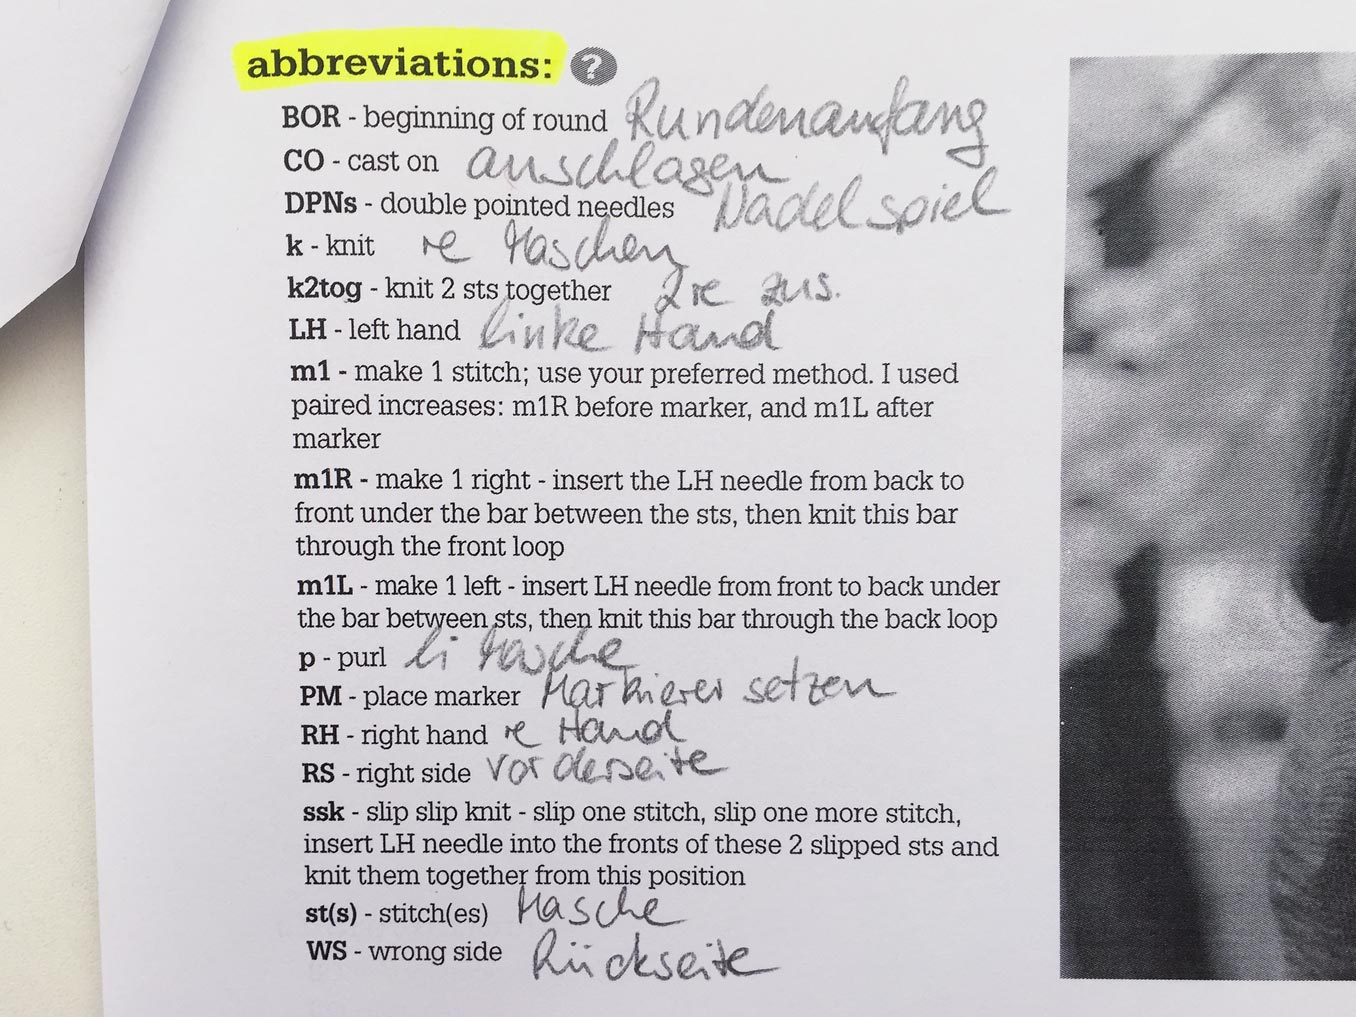 abbreviations: ?
BOR - beginning of round Rundenanfang
CO - cast on anschlagen
DPNs - double pointed needles Nadelspiel
k - knit re Maschen
k2tog - knit 2 sts together 2re zus.
LH - left hand linke Hand
m1 - make 1 stitch; use your preferred method. I used
paired increases: m1R before marker, and m1L after
marker
m1R - make 1 right - insert the LH needle from back to
front under the bar between the sts, then knit this bar
through the front loop
m1L - make 1 left - insert LH needle from front to back under
the bar between sts, then knit this bar through the back loop
p - purl li Masche
PM - place marker Markierer setzen
RH - right hand re Hand
RS - right side Vorderseite
ssk - slip slip knit - slip one stitch, slip one more stitch,
insert LH needle into the fronts of these 2 slipped sts and
knit them together from this position
st(s) - stitch(es) Masche
WS - wrong side Rückseite